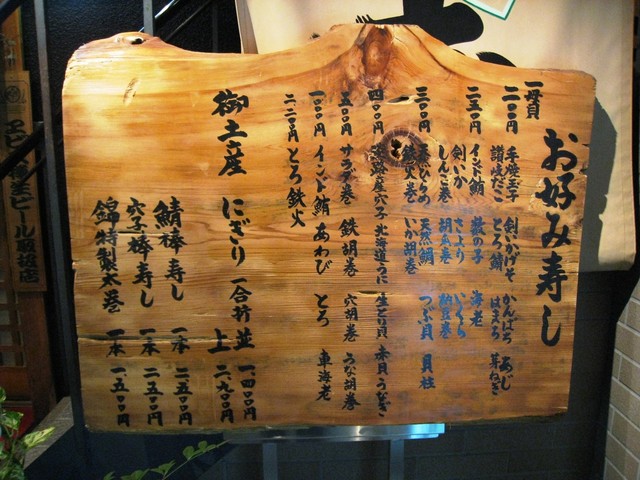 お好み寿し
一貫
二〇〇円 手焼玉子 剣いかげそ かんぱち あじ
讃岐だこ とろ鯖 はまち 芽ねぎ
二五〇円 インド鮪 数の子 海老
剣いか さより いくら
しんこ巻 胡瓜巻 納豆巻
三〇〇円 天然ひらめ 天然鯛 つぶ貝 貝柱
鉄火巻 いか胡巻
四〇〇円 淡路屋穴子 北海道うに 生とり貝 赤貝 うなぎ
五〇〇円 サラダ巻 鉄胡巻 穴胡巻 うな胡巻
一〇〇〇円 インド鮪 あわび とろ 車海老
二二〇〇円 とろ鉄火
御土産 にぎり 一合折 並 一、四〇〇円
上 二、二〇〇円
鯖棒寿し 一本 二、五〇〇円
穴子棒寿し 一本 二、五〇〇円
錦特製太巻 一本 一、五〇〇円
生ビール取扱店